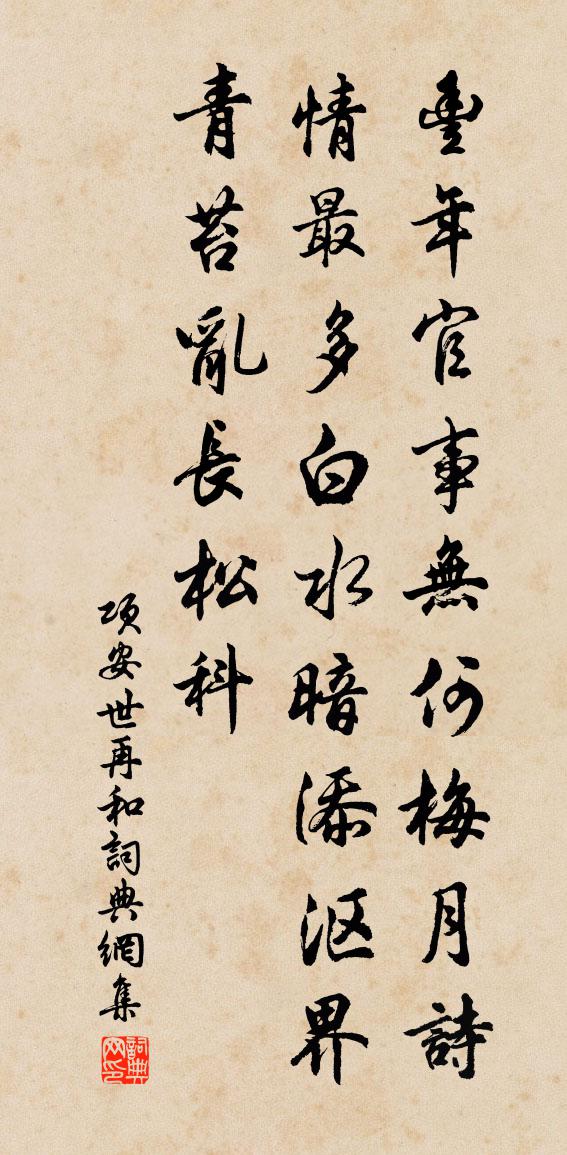 豐年官事無何梅月詩
情最多白水暗添沤界
青苔亂長松科
项安世再和詞典網集
詞典网印